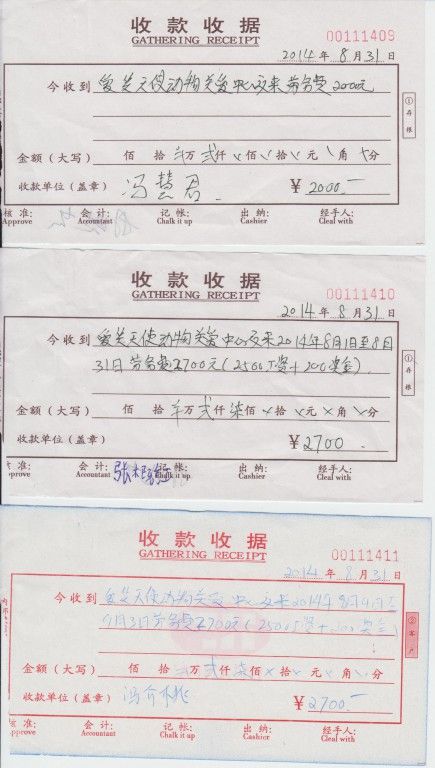 收款收据
GATHERING RECEIPT
00111409
2014 年 8 月 31 日
今收到 爱笑天使动物关爱中心发来劳务费2000元
①存根
金额（大写） 佰 拾 万 贰仟 佰 拾 元 角 分
收款单位（盖章） 冯慧君 ¥ 2000.-
核准: 会计: 记帐: 出纳: 经手人:
Approve Accountant Chalk it up Cashier Cleal with
收款收据
GATHERING RECEIPT
00111410
2014 年 8 月 31 日
今收到 爱笑天使动物关爱中心发来2014年8月1日至8月
31日劳务费2700元(2500工资+200奖金)
①存根
金额（大写） 佰 拾 万 贰仟 柒佰 拾 元 角 分
收款单位（盖章） ¥ 2700.-
核准: 会计: 记帐: 出纳: 经手人:
Approve Accountant Chalk it up Cashier Cleal with
收款收据
GATHERING RECEIPT
00111411
2014 年 8 月 31 日
今收到 爱笑天使动物关爱中心发来2014年8月
劳务费2700元(2500工资+200奖金)
②客户
金额（大写） 佰 拾 万 贰仟 柒佰 拾 元 角 分
收款单位（盖章） ¥ 2700.-
核准: 会计: 记帐: 出纳: 经手人:
Approve Accountant Chalk it up Cashier Cleal with